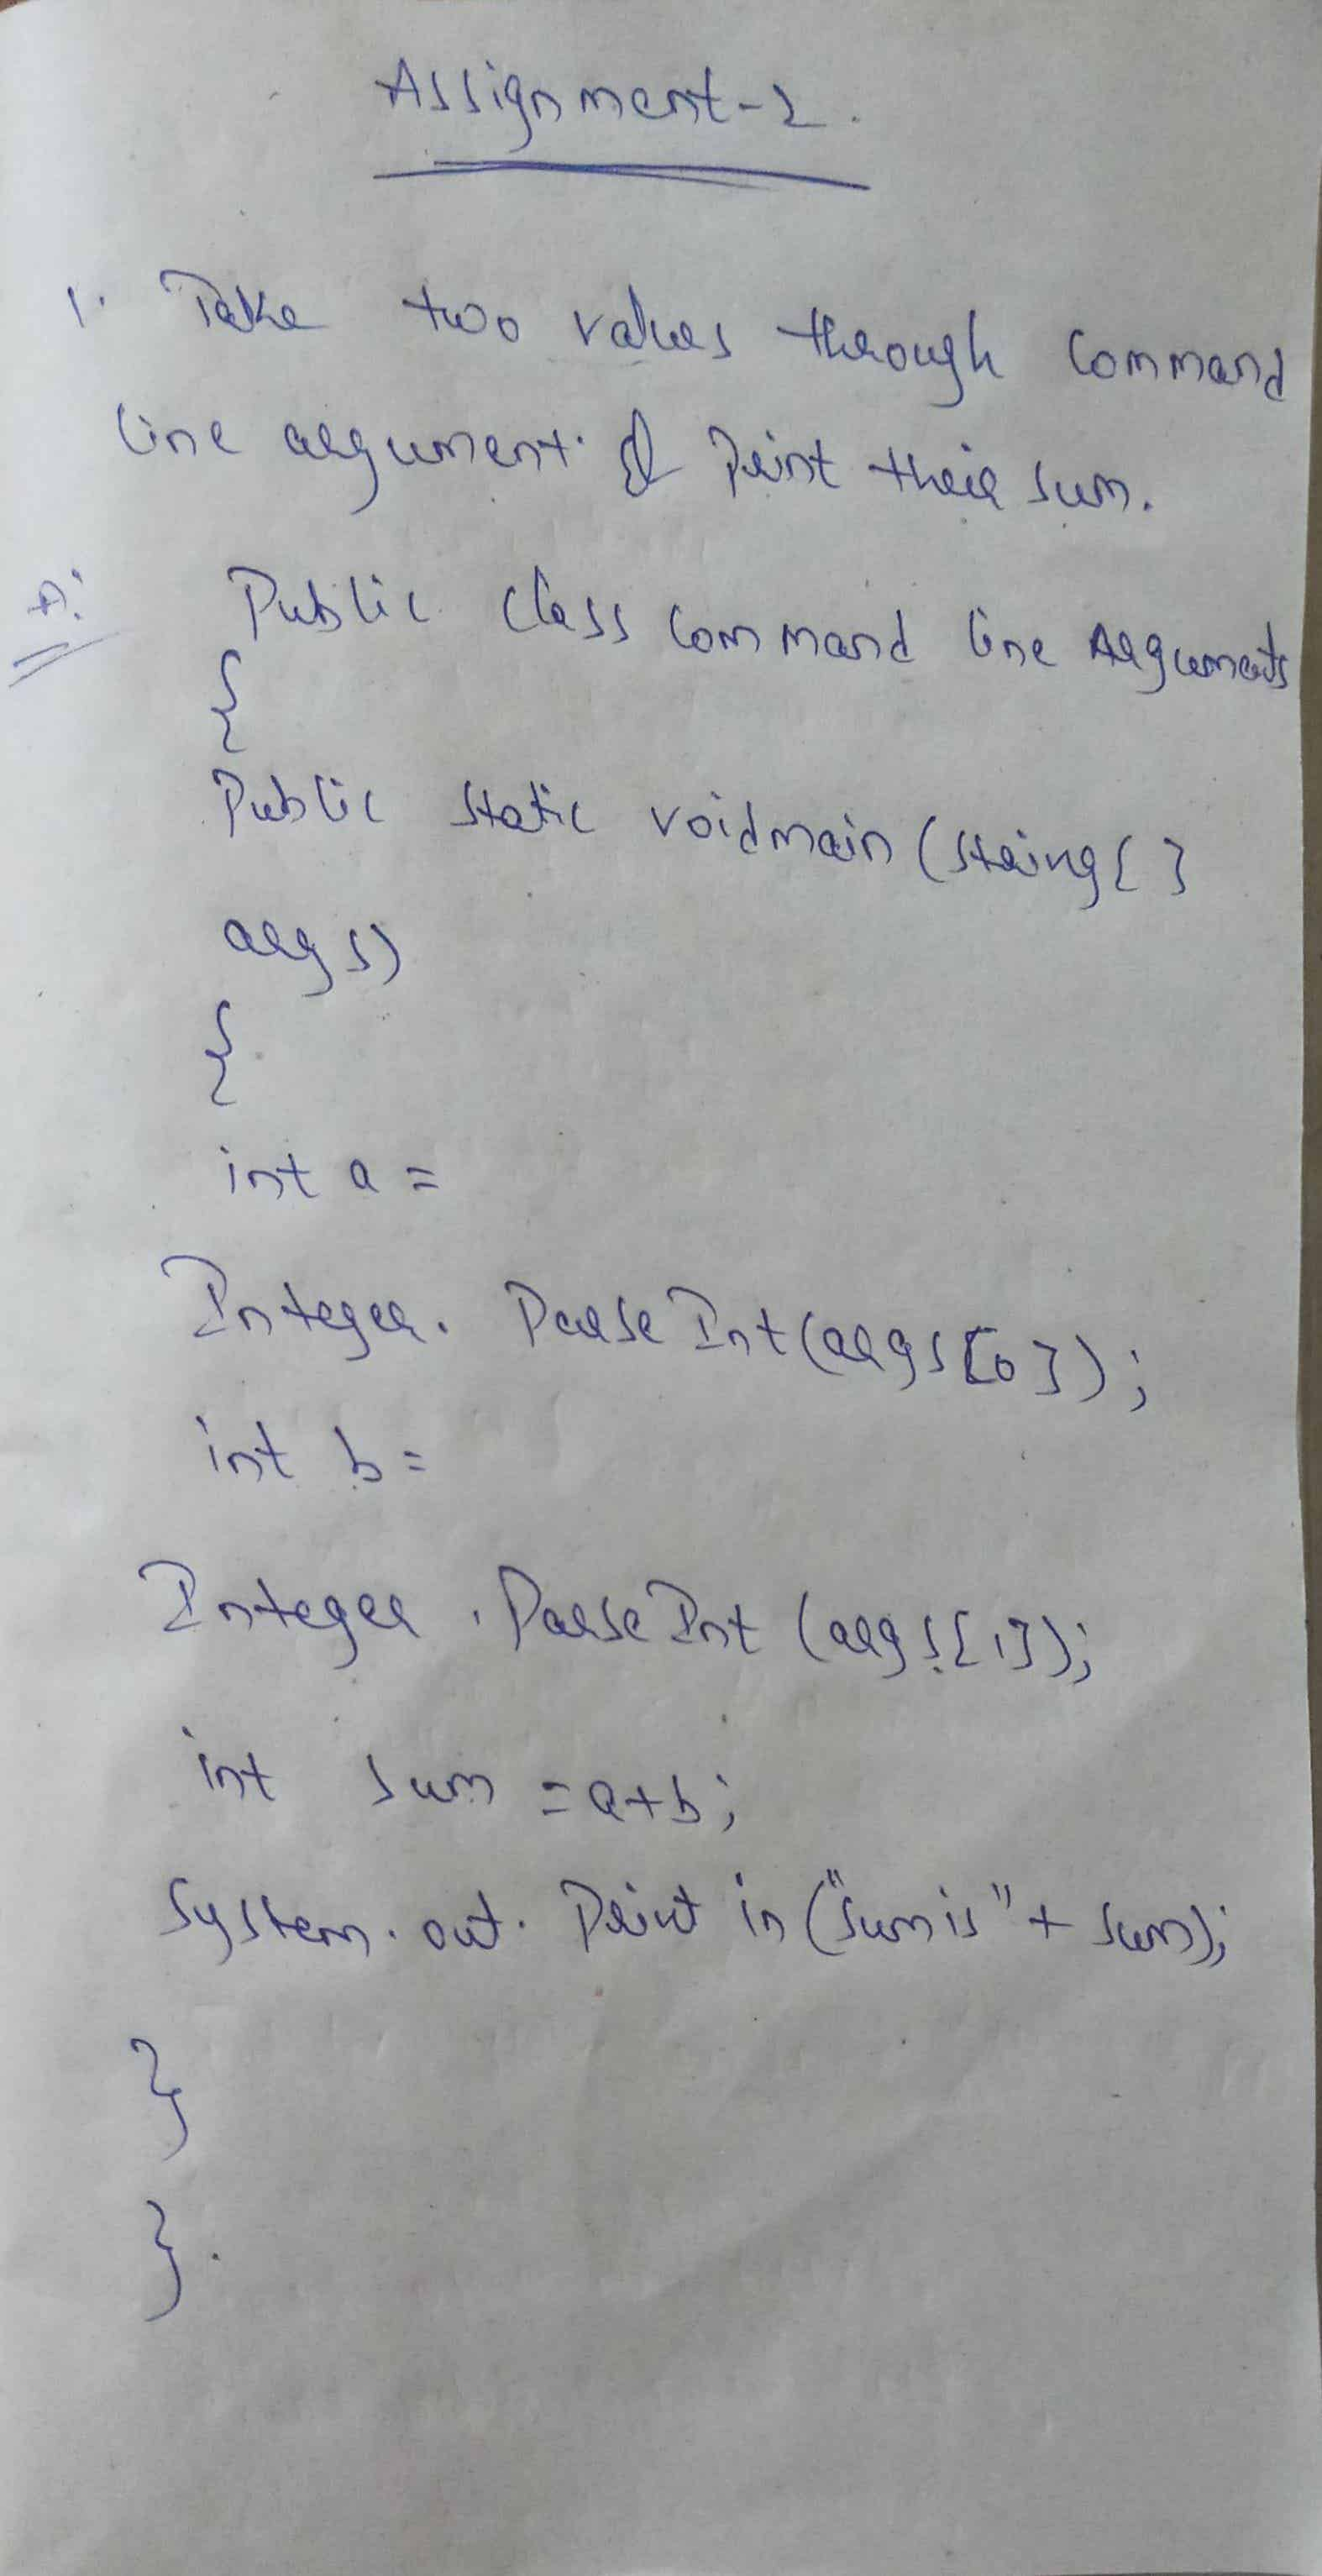 Assignment-2.
1. Take two values through Command
line argument & Print their sum.
A: Public class Command line Arguments
{
Public static voidmain (string[]
args)
{
int a =
Integer. Parse Int(args[0]);
int b =
Integer . Parse Int (args[1]);
int sum = a+b;
System. out. Print in ("sum is" + sum);
}
}.